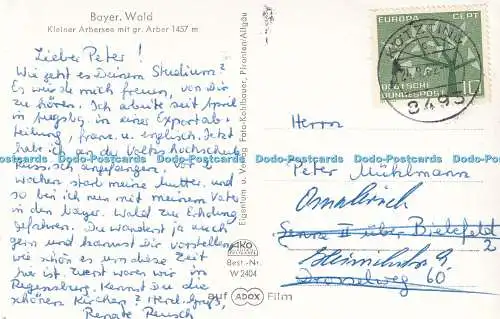 Bayer. Wald
Kleiner Arbersee mit gr. Arber 1457 m
Lieber Peter!
Wie geht es Deinem Studium?
Es würde mich freuen, von Dir
zu hören. Ich arbeite seit April
in Augsbg. in einer Exportab-
teilung, franz. u. englisch. Jetzt
habe ich an der Volkshochschule
Russ. isch angefangen. Vor
Wochen starb meine Mutter. und
so bin ich nun mit meinem Vater
in den Bayer. Wald zur Erholung
gefahren. Du wanderst ja auch
gern und kannst Dir vorstellen
wie schön es um diese Zeit
hier ist. Zuerst waren wir in
Regensburg. Kennst Du die
schönen Kirchen? Herzl. Grüß,
Renate Reusch
Eigentum u. Verlag Foto-Kohlbauer, Pfronten/Allgäu
AKO
Best.-Nr.
W 2404
auf ADOX Film
EUROPA CEPT
DEUTSCHE
BUNDESPOST
10
KÖTZTING
8493
Herrn
Peter Mühlmann
Senne II über Bielefeld
2
60
Dodo-Postcards Dodo-Postcards Dodo-Postcards Dodo-Postcards Dodo-Postcards